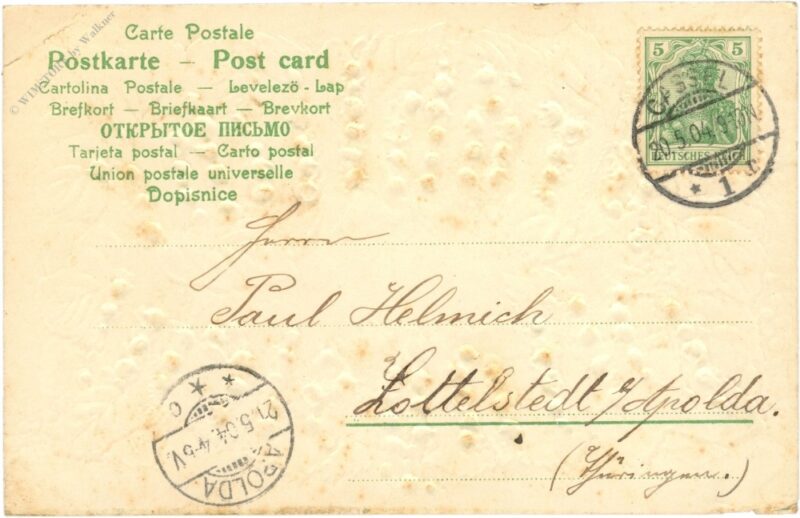 © WIMSTORE by Walkner
Carte Postale
Postkarte — Post card
Cartolina Postale — Levelező-Lap
Brefkort — Briefkaart — Brevkort
ОТКРЫТОЕ ПИСЬМО
Tarjeta postal — Carto postal
Union postale universelle
Dopisnice
5 5
DEUTSCHES REICH
CASSEL
20.5.04.
* 1
Herrn
Paul Helmich
Zottelstedt b/Apolda.
(Thüringen.)
* * c
21.5.04. 4-5V.
APOLDA